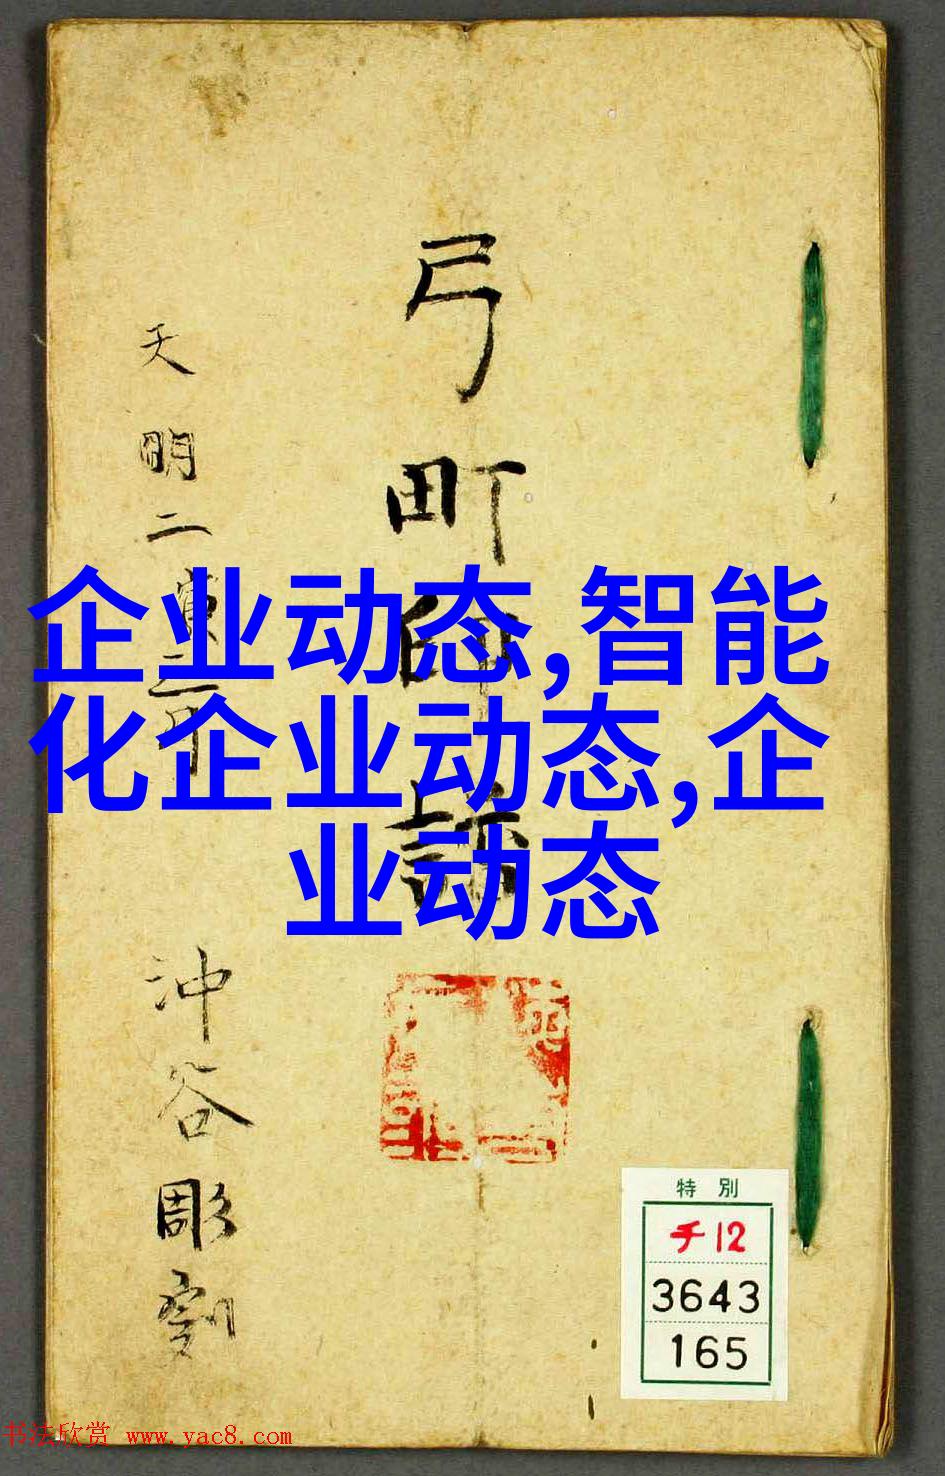 弓町印譜
天明二寅二月
沖谷彫刻
企业动态,智能
化企业动态,企
业动态
特別
チ12
3643
165
书法欣赏 www.yac8.com